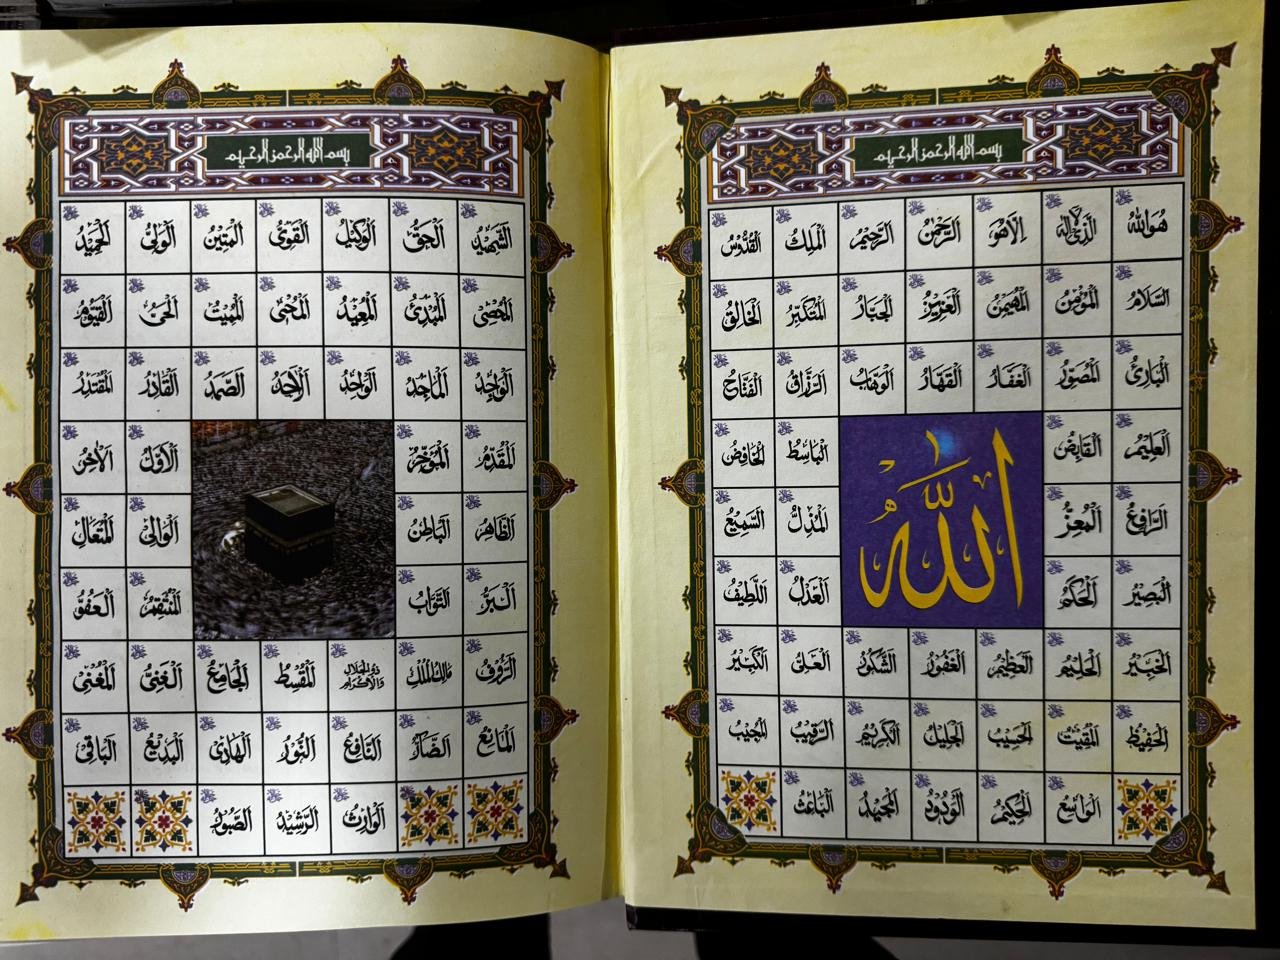 بسم الله الرحمن الرحيم
هُوَاللهُ الَّذِي لَا إِلَهَ إِلَّا هُوَ الَرَّحْمٰنُ الَرَّحِيْمُ الَمْلِكُ الَقُدُّوْسُ
اَلسَّلَامُ اَلْمُؤْمِنُ اَلْمُهَيْمِنُ اَلْعَزِيْزُ اَلْجَبَّارُ اَلْمُتَكَبِّرُ اَلْخَالِقُ
اَلْبَارِئُ اَلْمُصَوِّرُ اَلْغَفَّارُ اَلْقَهَّارُ اَلْوَهَّابُ اَلرَّزَّاقُ اَلْفَتَّاحُ
اَلْعَلِيْمُ اَلْقَابِضُ اَلْبَاسِطُ اَلْخَافِضُ
اَلرَّافِعُ اَلْمُعِزُّ اَلْمُذِلُّ اَلسَّمِيْعُ
اَلْبَصِيْرُ اَلْحَكَمُ اَلْعَدْلُ اَللَّطِيْفُ
الله
اَلْخَبِيْرُ اَلْحَلِيْمُ اَلْعَظِيْمُ اَلْغَفُوْرُ اَلشَّكُوْرُ اَلْعَلِيُّ اَلْكَبِيْرُ
اَلْحَفِيْظُ اَلْمُقِيْتُ اَلْحَسِيْبُ اَلْجَلِيْلُ اَلْكَرِيْمُ اَلرَّقِيْبُ اَلْمُجِيْبُ
اَلْوَاسِعُ اَلْحَكِيْمُ اَلْوَدُوْدُ اَلْمَجِيْدُ اَلْبَاعِثُ
بسم الله الرحمن الرحيم
اَلشَّهِيْدُ اَلْحَقُّ اَلْوَكِيْلُ اَلْقَوِيُّ اَلْمَتِيْنُ اَلْوَلِيُّ اَلْحَمِيْدُ
اَلْمُحْصِيْ اَلْمُبْدِئُ اَلْمُعِيْدُ اَلْمُحْيِيْ اَلْمُمِيْتُ اَلْحَيُّ اَلْقَيُّوْمُ
اَلْوَاجِدُ اَلْمَاجِدُ اَلْوَاحِدُ اَلْأَحَدُ اَلصَّمَدُ اَلْقَادِرُ اَلْمُقْتَدِرُ
اَلْمُقَدِّمُ اَلْمُؤَخِّرُ اَلْأَوَّلُ اَلْآخِرُ
اَلظَّاهِرُ اَلْبَاطِنُ اَلْوَالِيْ اَلْمُتَعَالِ
اَلْبَرُّ اَلتَّوَّابُ اَلْمُنْتَقِمُ اَلْعَفُوُّ
اَلرَّؤُوْفُ مَالِكُ الْمُلْكِ ذُو الْجَلَالِ وَالْإِكْرَامِ اَلْمُقْسِطُ اَلْجَامِعُ اَلْغَنِيُّ اَلْمُغْنِيْ
اَلْمَانِعُ اَلضَّارُّ اَلنَّافِعُ اَلنُّوْرُ اَلْهَادِيْ اَلْبَدِيْعُ اَلْبَاقِيْ
اَلْوَارِثُ اَلرَّشِيْدُ اَلصَّبُوْرُ